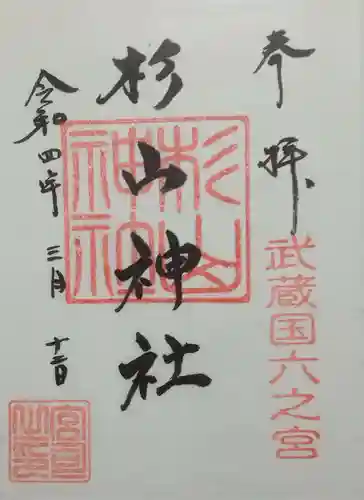 奉拝
武蔵国六之宮
杉山神社
杉山神社
令和四年 三月 十二日
宮司之印